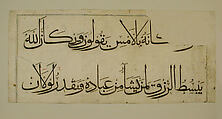 مكانه بالامس يقولون ويكأن الله
يبسط الرزق لمن يشاء من عباده ويقدر لولا ان